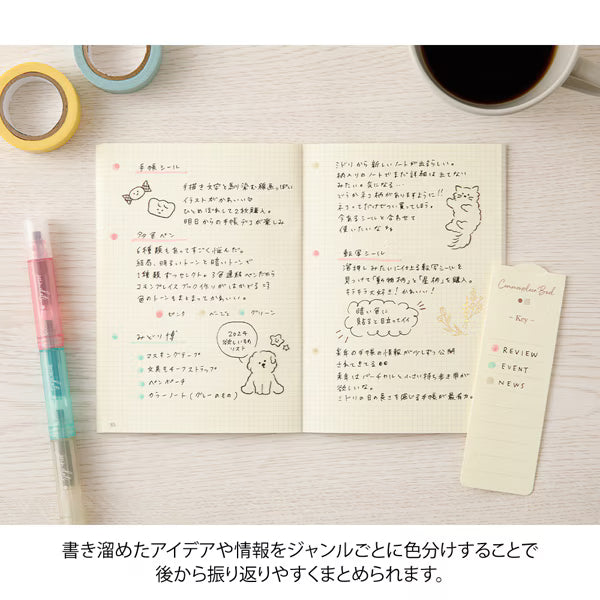 手帳シール
手描き文字と馴染む線画っぽい
イラストがかわいい
ひとめぼれして2枚購入。
明日からの手帳デコが楽しみ
多色ペン
6種類もあってすごく悩んだ。
結局、明るいトーンと暗いトーンで
1種類ずつセレクト。3色連結ペンだから
コモンプレイスブック作りがはかどる
色のトーンもまとまってかわいい。
ピンク
グリーン
みどり博
マスキングテープ
文具モチーフストラップ
ペンポーチ
カラーノート(グレーのもの)
2024
欲しいもの
リスト
ミドリから新しいノートが出るらしい。
柄入りのノートでまだ詳細は出てない
みたい。気になる...
どうかネコ柄がありますように!!
ネコってだけでつい買ってしまう。
今あるシールと合わせて
使いたいなぁ。
転写シール
箔押しみたいに仕上る転写シールを
見つけて「動物柄」と「星柄」を購入。
キラキラ大好き!かわいい!
暗い色に
貼ると目立ってイイ
来年の手帳の情報が少しずつ公開
されてきてる
来年はバーチカルと小さい持ち歩き用が
欲しいな。
ミドリの日の長さを感じる手帳が最有力。
Commonplace Book
- Key -
REVIEW
EVENT
NEWS
書き溜めたアイデアや情報をジャンルごとに色分けすることで
後から振り返りやすくまとめられます。